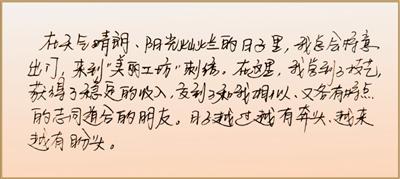 在天气晴朗、阳光灿烂的日子里，我总会特意
出门，来到“美丽工坊”刺绣。在这里，我学到了技艺，
获得了稳定的收入，交到了和我相似、又各有特点
的志同道合的朋友。日子越过越有奔头、越来
越有盼头。